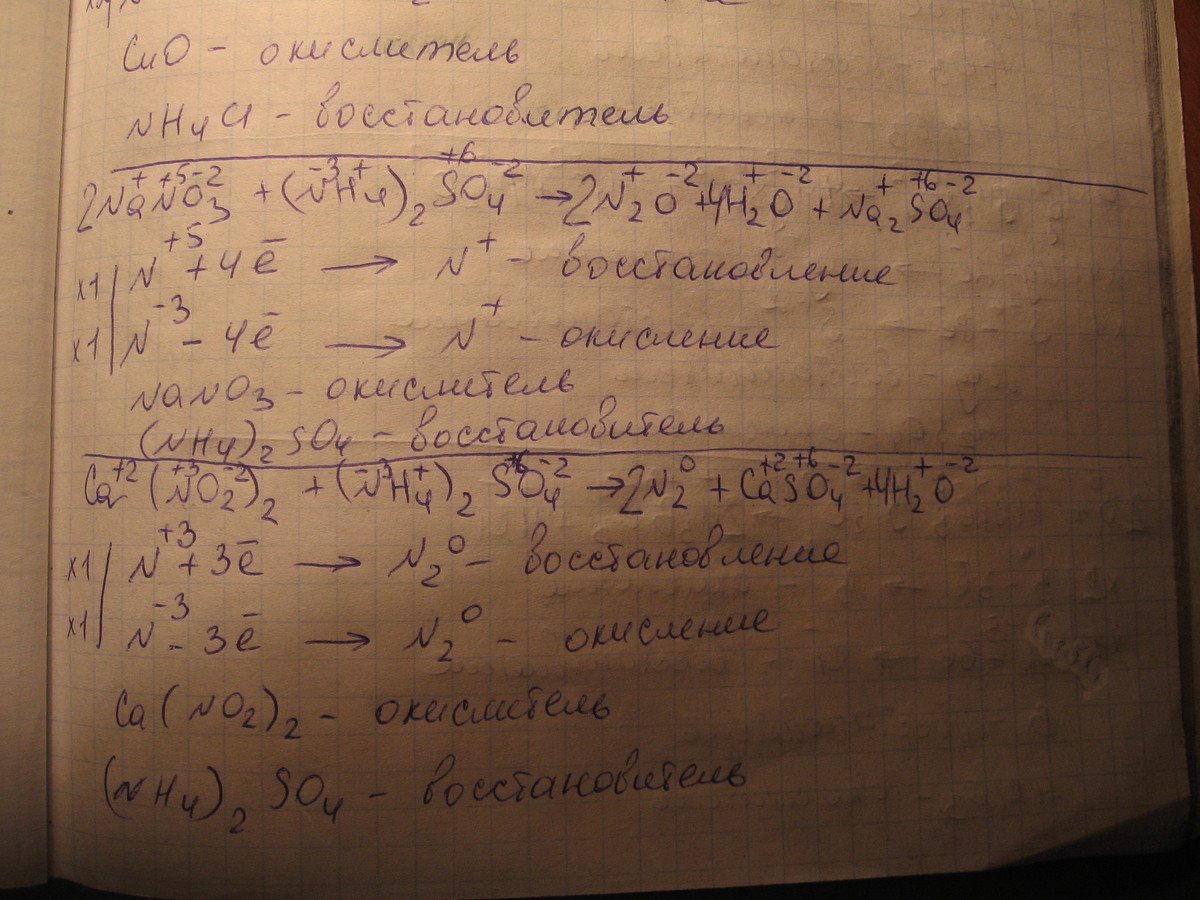 CuO - окислитель
NH₄Cl - восстановитель
2Na⁺N⁺⁵O₃⁻² + (N⁻³H₄⁺)₂S⁺⁶O₄⁻² → 2N₂⁺O⁻² + 4H₂⁺O⁻² + Na₂⁺S⁺⁶O₄⁻²
x1 | N⁺⁵ + 4ē → N⁺ - восстановление
x1 | N⁻³ - 4ē → N⁺ - окисление
NaNO₃ - окислитель
(NH₄)₂SO₄ - восстановитель
Ca⁺²(N⁺³O₂⁻²)₂ + (N⁻³H₄⁺)₂S⁺⁶O₄⁻² → 2N₂⁰ + Ca⁺²S⁺⁶O₄⁻² + 4H₂⁺O⁻²
x1 | N⁺³ + 3ē → N₂⁰ - восстановление
x1 | N⁻³ - 3ē → N₂⁰ - окисление
Ca(NO₂)₂ - окислитель
(NH₄)₂SO₄ - восстановитель